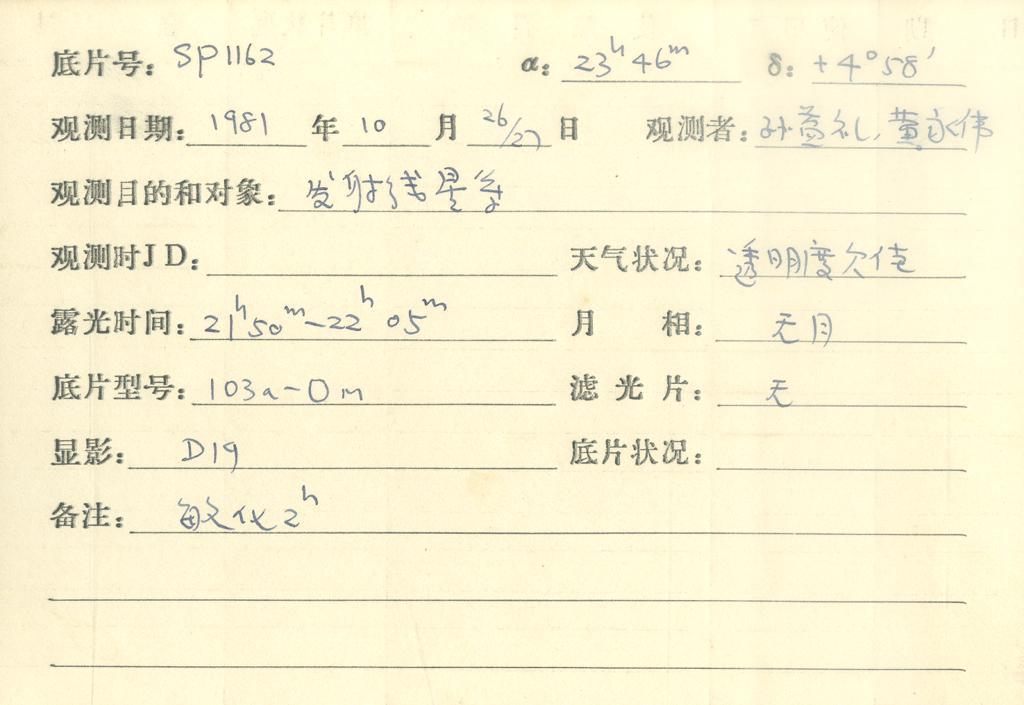 底片号: SP1162 α: 23ʰ46ᵐ δ: +4°58′
观测日期: 1981 年 10 月 26/27 日 观测者: 孙益礼、黄永伟
观测目的和对象: 发射线星等
观测时JD:
天气状况: 透明度欠佳
露光时间: 21ʰ50ᵐ—22ʰ05ᵐ 月 相: 无月
底片型号: 103a-O m 滤 光 片: 无
显影: D19 底片状况:
备注: 敏化2ʰ